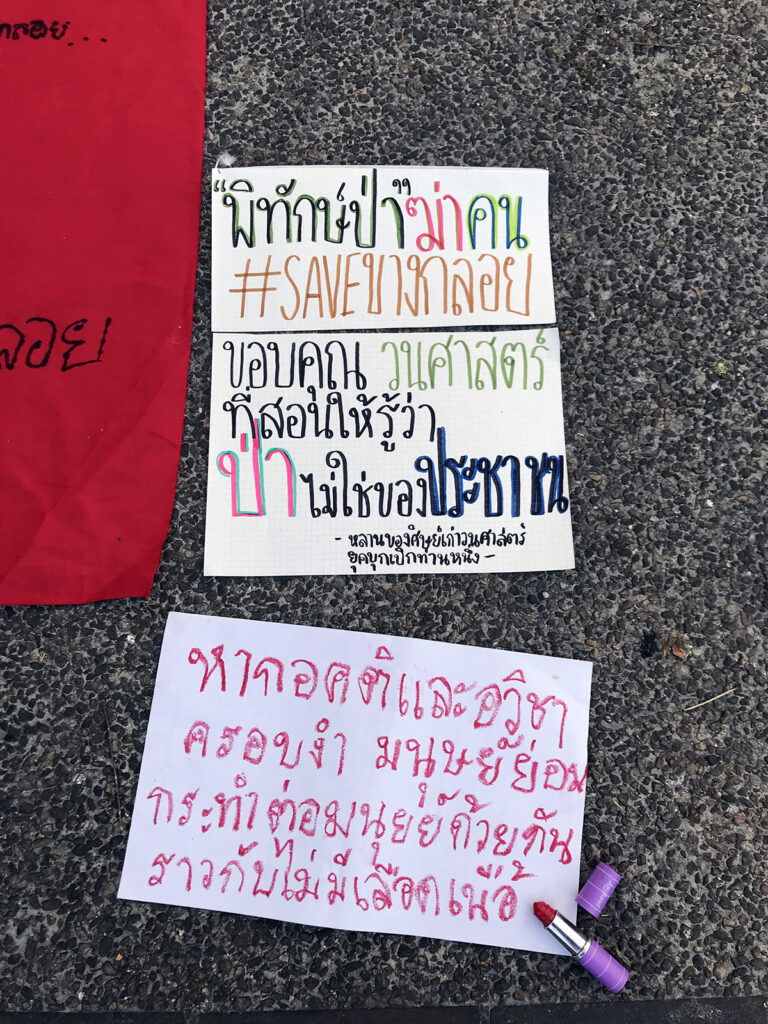 กลอย...
ลอย
"พิทักษ์ป่า" ฆ่าคน
#SAVEบางกลอย
ขอบคุณ วนศาสตร์
ที่สอนให้รู้ว่า
ป่า ไม่ใช่ของประชาชน
- หลานของศิษย์เก่าวนศาสตร์
ยุคบุกเบิกท่านหนึ่ง -
หากอคติและอวิชา
ครอบงำ มนุษย์ย่อม
กระทำต่อมนุยย์ด้วยกัน
ราวกับไม่มีเลือดเนื้อ